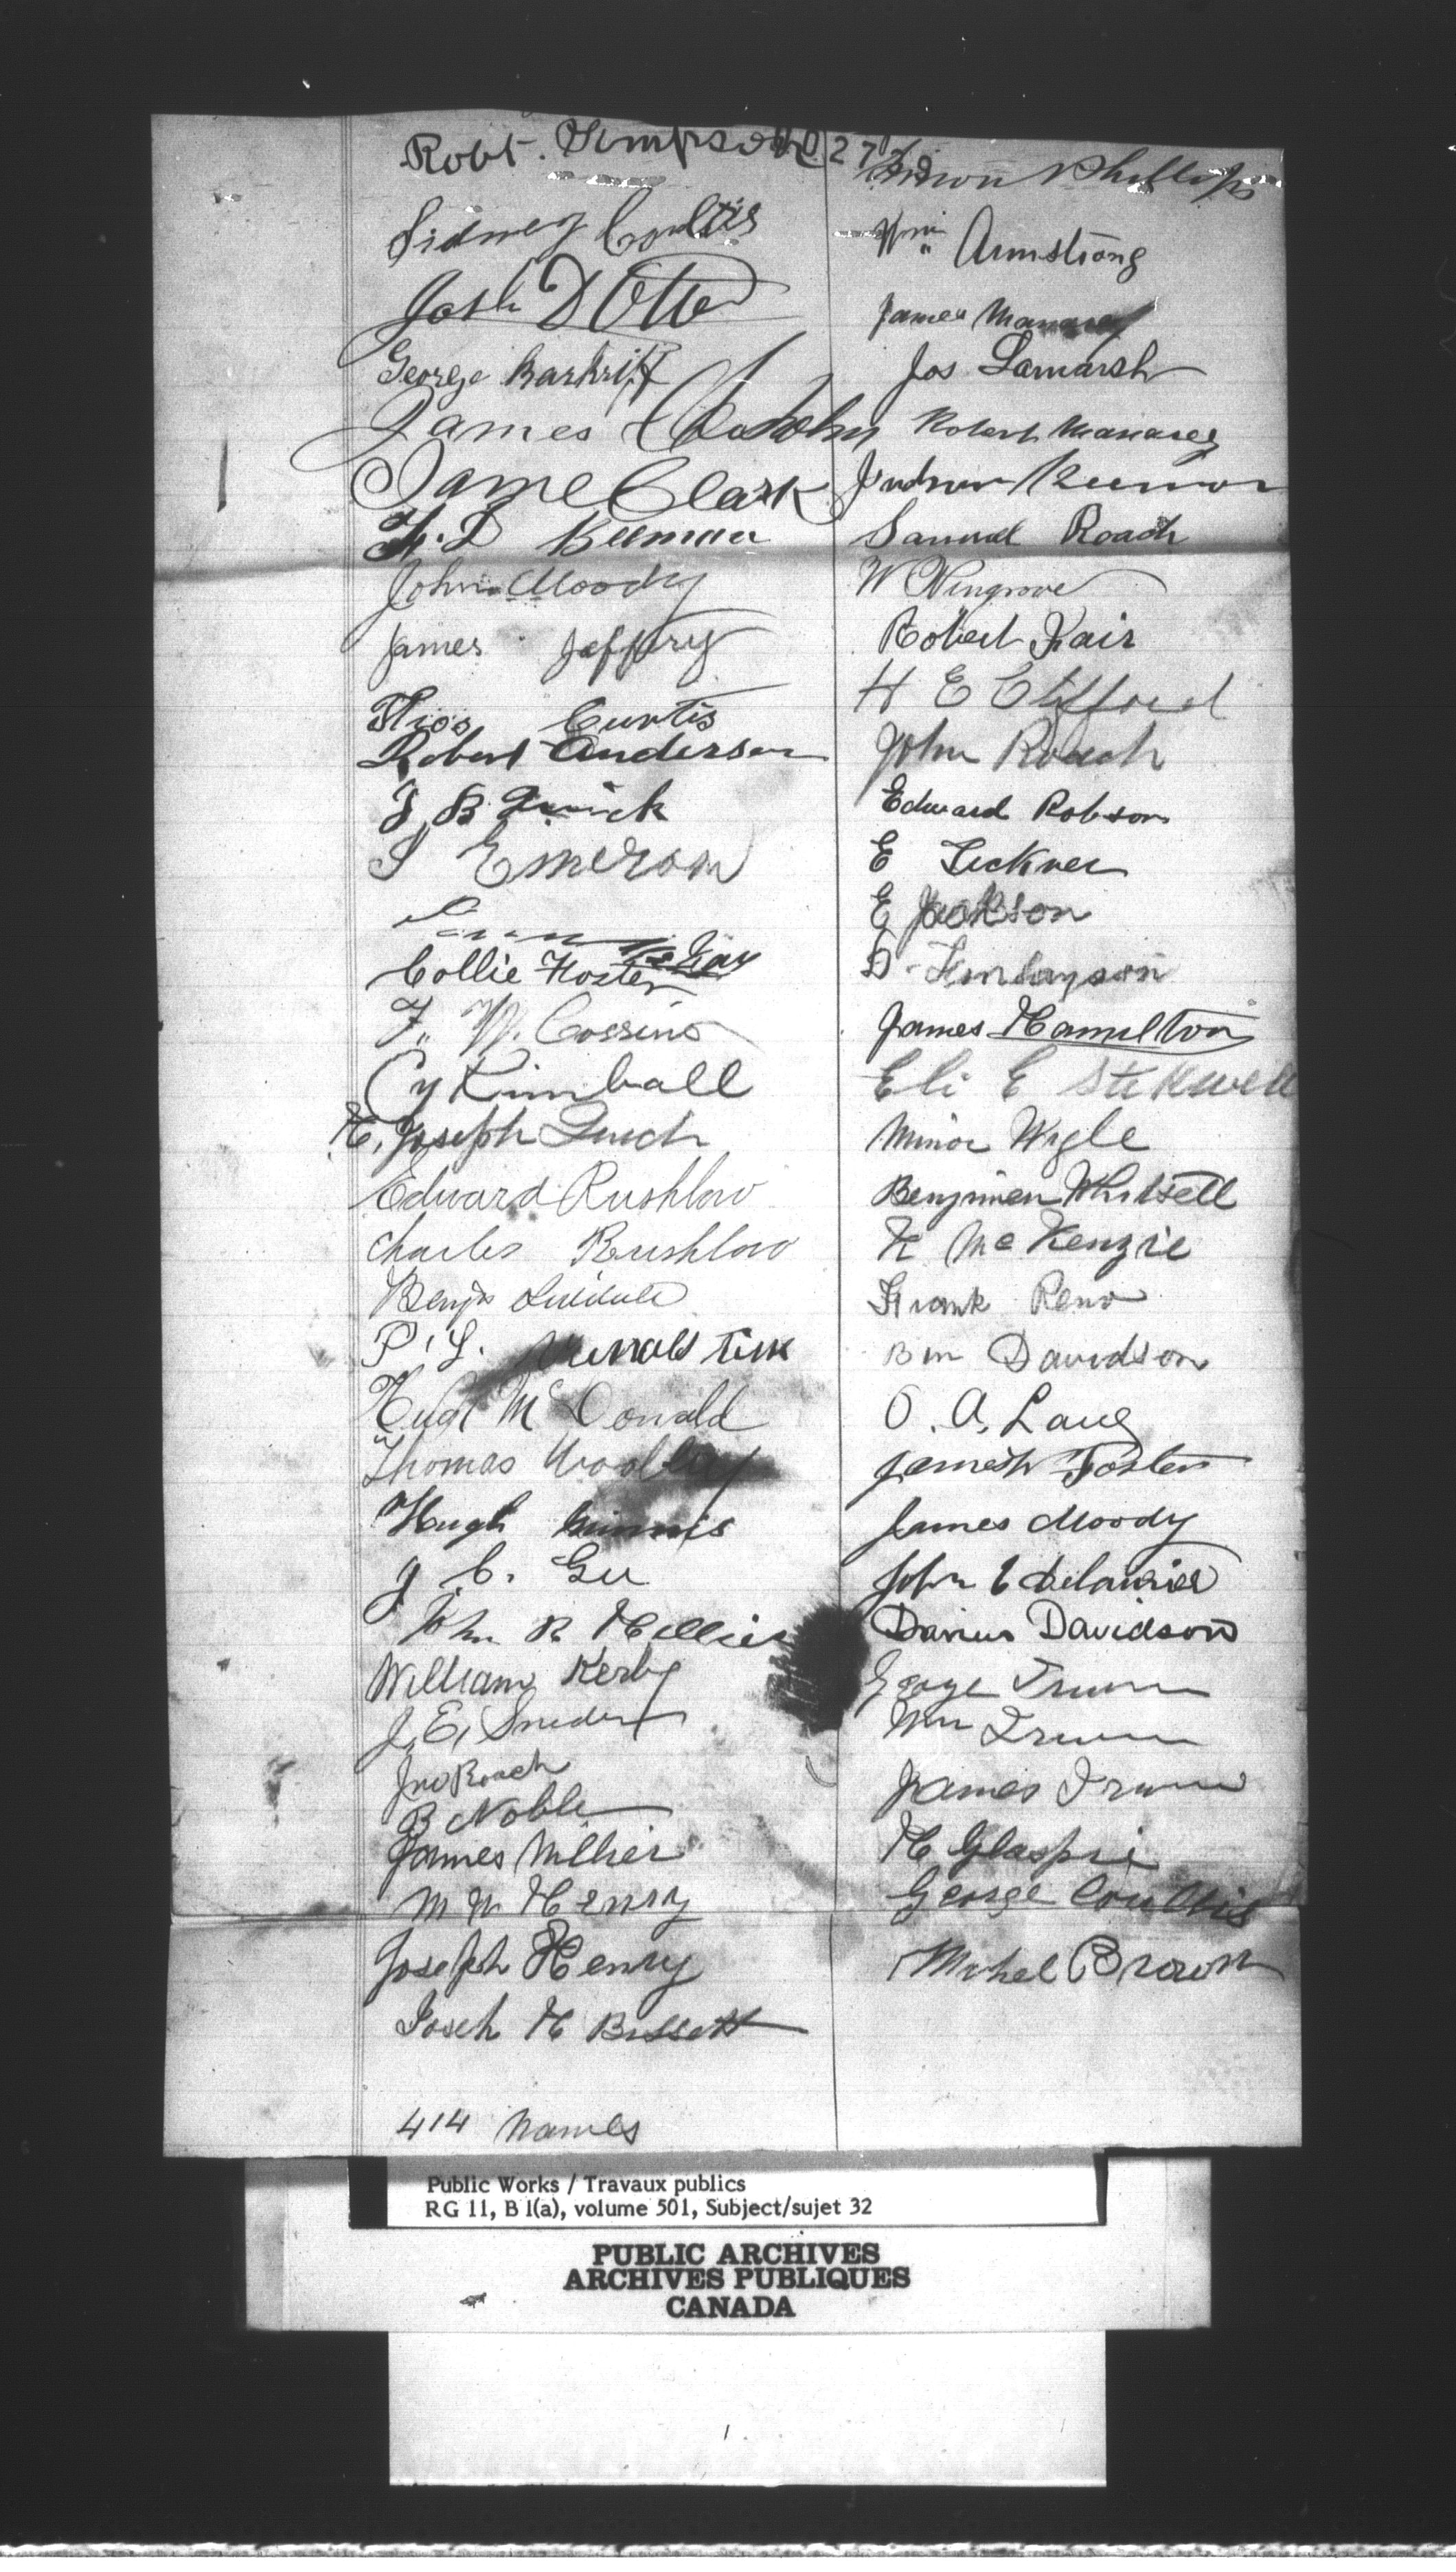 Robt. Simpson
Sidney Coultis
Josh D Otto
George
James Chisholm
James Clark
Beeman
John Moody
James Jeffery
Thos Curtis
Robert Anderson
S B Quick
S Emerson
Collie Foster
F. W. Cossins
Cy Kimball
H. Joseph Quick
Edward Rushlow
Charles Rushlow
Benj
P. L.
Hugh McDonald
Thomas Woolley
Hugh
J. C. Gee
John R Hellier
William Kerby
J. E. Snider
Jno Roach
B Noble
James Millier
M W Henry
Joseph Henry
Joseh H Bissett
414 Names
Simon Phillips
Wm Armstrong
James Manary
Jos Lamarsh
Robert Manarey
Andrew
Samuel Roach
W Wingrove
Robert Kair
H E Clifford
John Roach
Edward Robson
E Lickner
E Jackson
D. Finlayson
James Hamilton
Eli E Stockwell
Minor Wigle
Benjimen Whitsell
H McKenzie
Frank Reno
Ben Davidson
O. A. Laug
James H Foster
James Moody
John E Delaurier
Darius Davidson
George Irwin
Wm Irwin
James Irwin
H Glaspie
George Coultis
Mickel Brown
Public Works / Travaux publics
RG 11, B 1(a), volume 501, Subject/sujet 32
PUBLIC ARCHIVES
ARCHIVES PUBLIQUES
CANADA